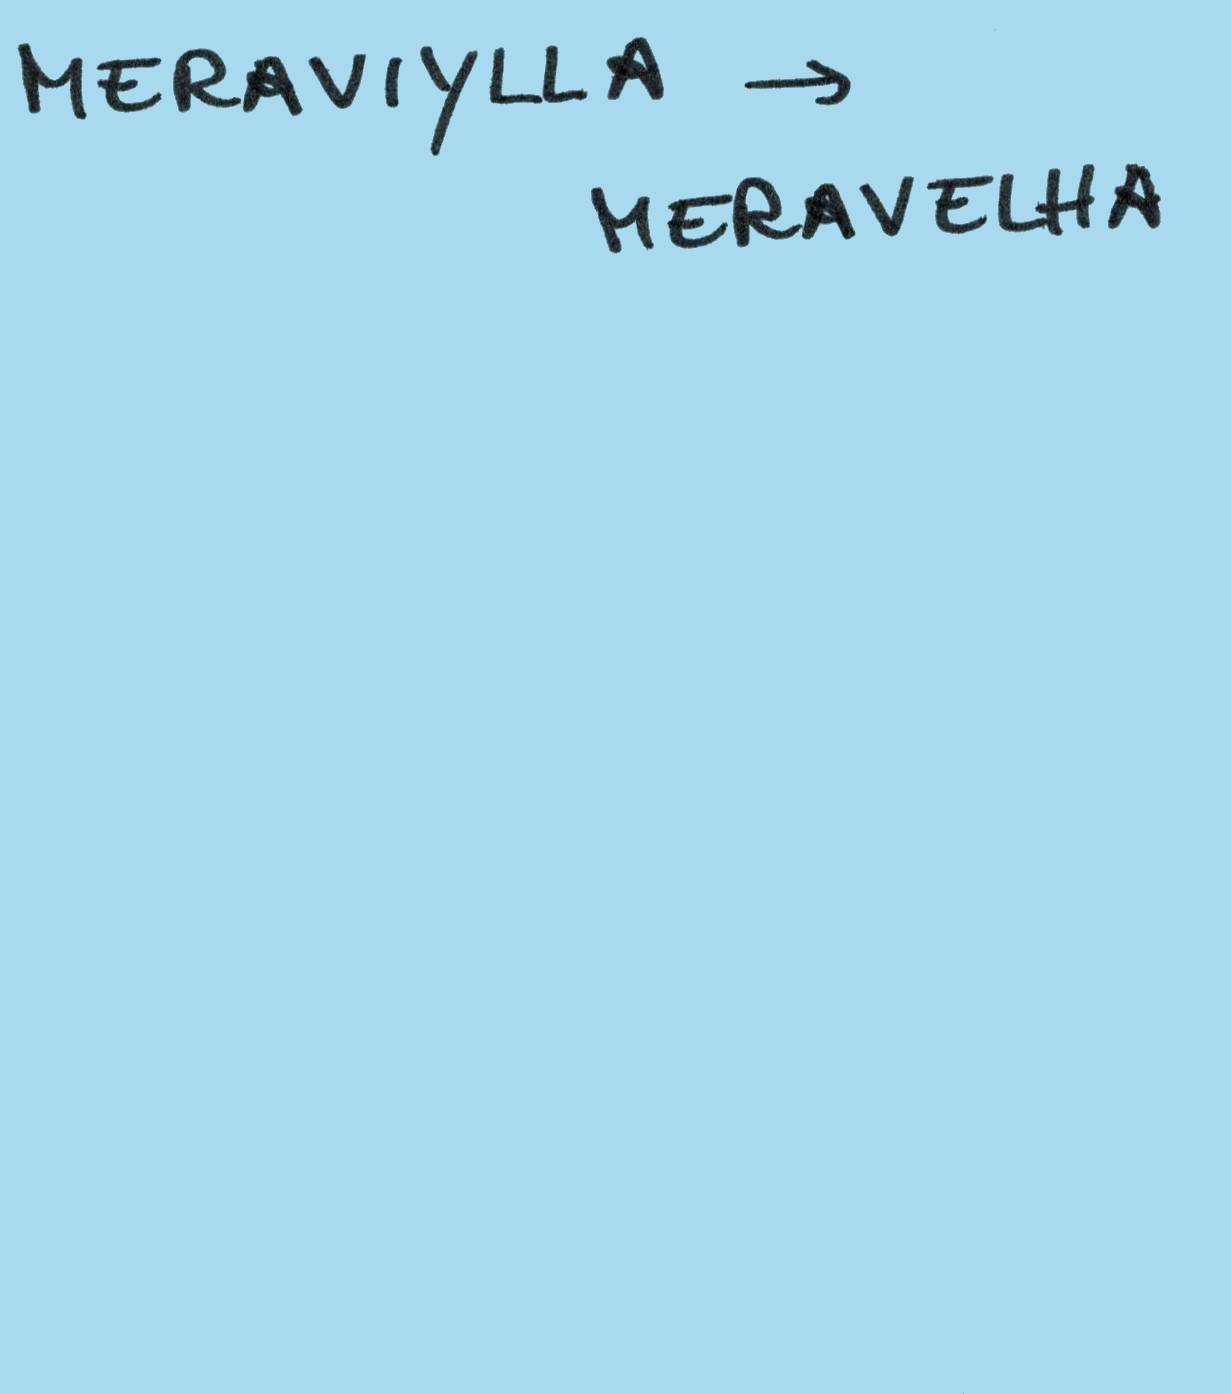 MERAVIYLLA →
MERAVELHA